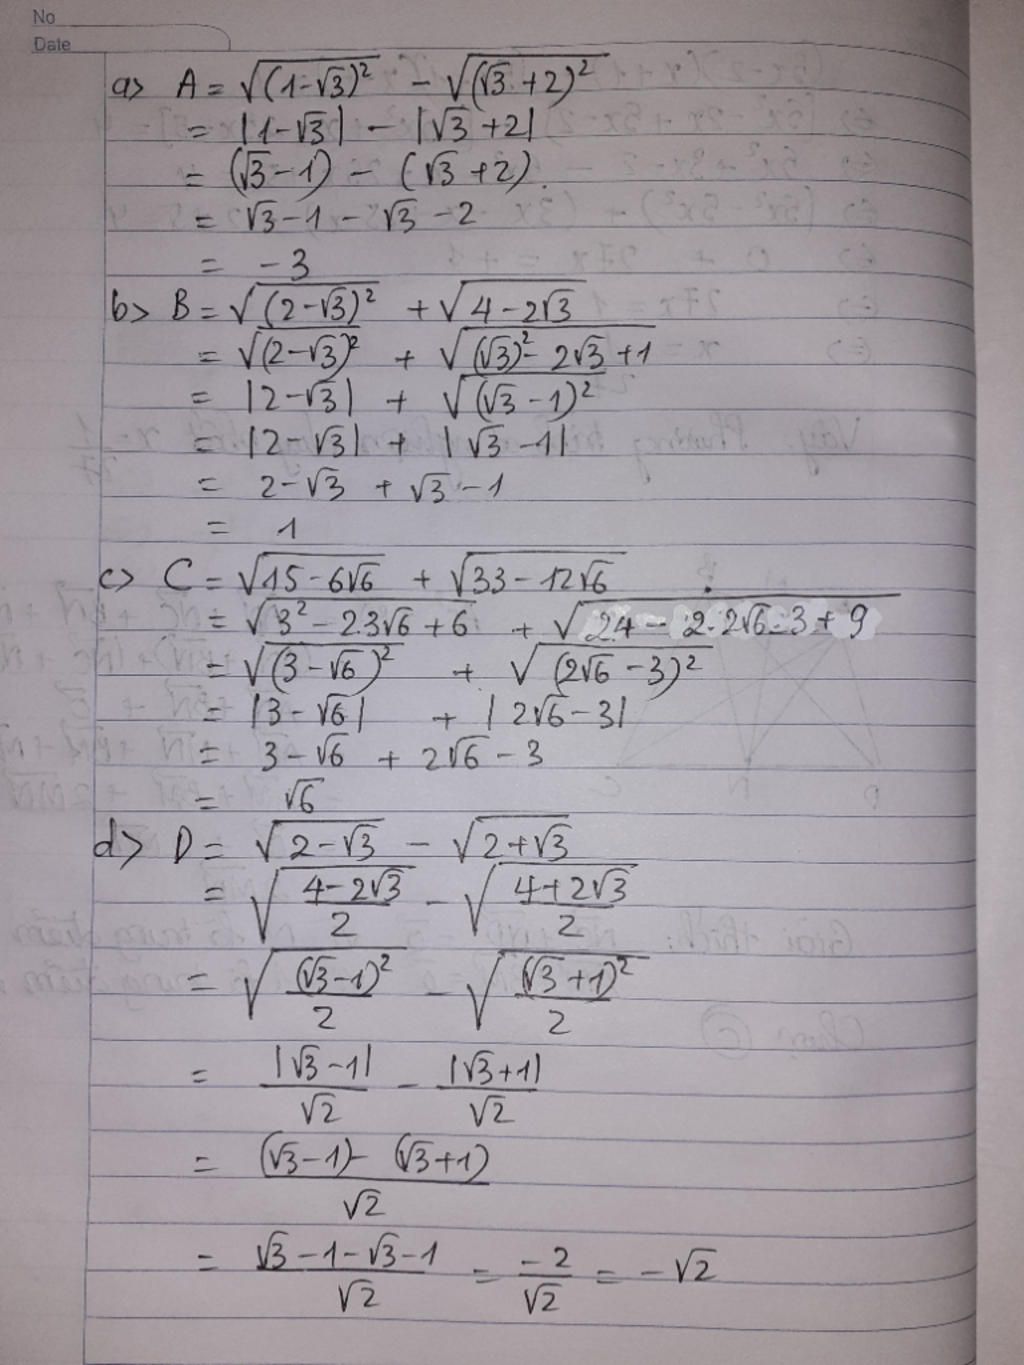 No
Date
a> A = √(1-√3)² - √(√3+2)²
= |1-√3| - |√3+2|
= (√3-1) - (√3+2).
= √3-1-√3-2
= -3
b> B = √(2-√3)² + √4-2√3
= √(2-√3)² + √(√3)²-2√3+1
= |2-√3| + √(√3-1)²
= |2-√3| + |√3-1|
= 2-√3 + √3-1
= 1
c> C = √15-6√6 + √33-12√6
= √3²-2.3√6+6 + √24-2.2√6.3+9
= √(3-√6)² + √(2√6-3)²
= |3-√6| + |2√6-3|
= 3-√6 + 2√6-3
= √6
d> D = √2-√3 - √2+√3
= √(4-2√3)/2 - √(4+2√3)/2
= √(√3-1)²/2 - √(√3+1)²/2
= |√3-1|/√2 - |√3+1|/√2
= (√3-1)-(√3+1)/√2
= √3-1-√3-1/√2 = -2/√2 = -√2